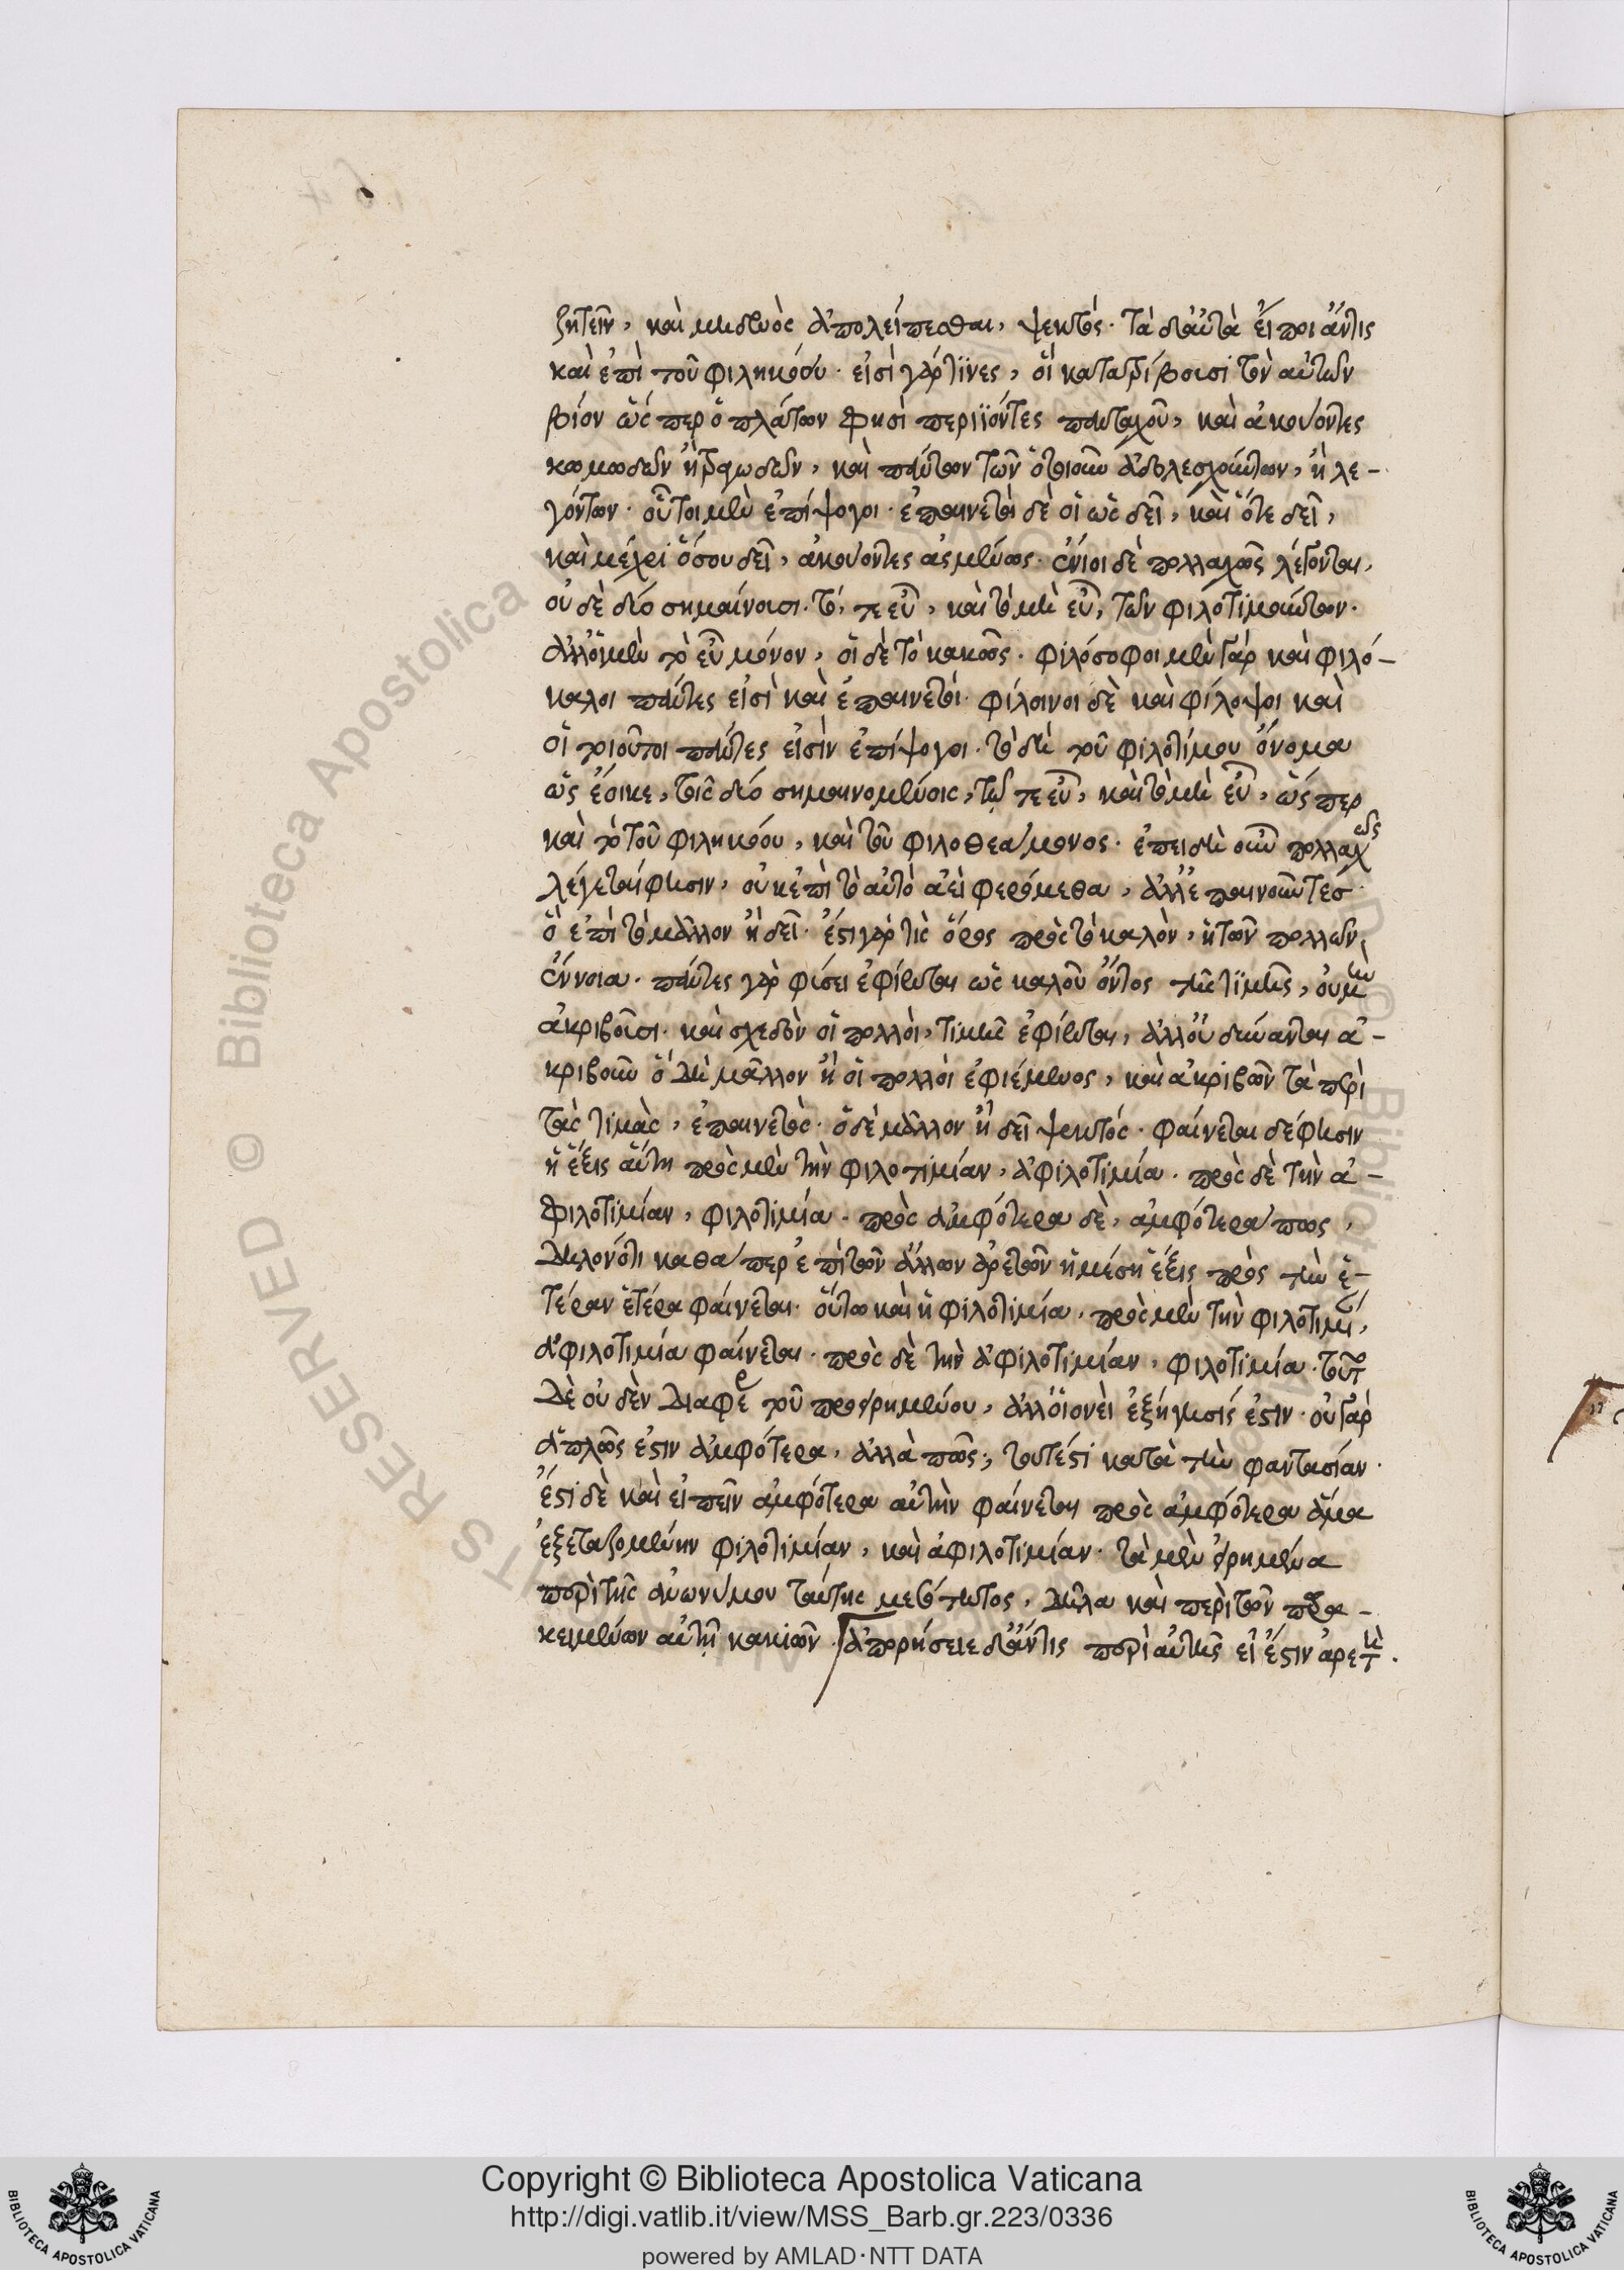 ζητεῖν, καὶ μηδενὸς ἀπολείπεσθαι, ψεκτός. τὰ δ' αὐτὰ εἴποι ἄν τις
καὶ ἐπὶ τοῦ φιληκόου. εἰσὶ γάρ τινες, οἳ κατατρίβουσι τὸν αὐτῶν
βίον ὥσπερ ὁ πλάτων φησὶ περιϊόντες πανταχοῦ, καὶ ἀκούοντες
κωμωδῶν ἢ τραγωδῶν, καὶ πάντων τῶν ὁτιοῦν ἀδολεσχούντων, ἢ λε-
γόντων. οὗτοι μὲν ἐπίψογοι. ἐπαινετοὶ δὲ οἱ ὡς δεῖ, καὶ ὅτε δεῖ,
καὶ μέχρι ὅσου δεῖ, ἀκούοντες ἀσμένως. ἔνιοι δὲ πολλαχῶς λέγονται,
οὐδὲ δύο σημαίνουσι. τό, τε εὖ, καὶ τὸ μὴ εὖ, τῶν φιλοτιμούντων.
ἀλλ' οἱ μὲν τὸ εὖ μόνον, οἱ δὲ τὸ κακῶς. φιλόσοφοι μὲν γὰρ καὶ φιλό-
καλοι πάντες εἰσὶ καὶ ἐπαινετοί. φίλοινοι δὲ καὶ φίλοψοι καὶ
οἱ τοιοῦτοι πάντες εἰσὶν ἐπίψογοι. τὸ δὴ τοῦ φιλοτίμου ὄνομα
ὡς ἔοικε, τοῖς δύο σημαινομένοις, τῷ τε εὖ, καὶ τὸ μὴ εὖ, ὥσπερ
καὶ τὸ τοῦ φιληκόου, καὶ τοῦ φιλοθεάμονος. ἐπειδὴ οὖν πολλαχῶς
λέγεταί φησιν, οὐκ ἐπὶ τὸ αὐτὸ ἀεὶ φερόμεθα, ἀλλ' ἐπαινοῦντες
ὃ ἐπὶ τὸ μᾶλλον ἢ δεῖ. ἔστι γάρ τις ὅρος πρὸς τὸ καλὸν, ἡ τῶν πολλῶν
ἔννοια. πάντες γὰρ φύσει ἐφίενται ὡς καλοῦ ὄντος τῆς τιμῆς, οὐ μὴν
ἀκριβοῦσι. καὶ σχεδὸν οἱ πολλοὶ, τιμῆς ἐφίενται, ἀλλ' οὐ δύνανται ἀ-
κριβοῦν ὁ δὴ μᾶλλον ἢ οἱ πολλοὶ ἐφιέμενος, καὶ ἀκριβῶν τὰ περὶ
τὰς τιμὰς, ἐπαινετός. ὁ δὲ μᾶλλον ἢ δεῖ ψεκτός. φαίνεται δέ φησιν
ἡ ἕξις αὕτη πρὸς μὲν τὴν φιλοτιμίαν, ἀφιλοτιμία. πρὸς δὲ τὴν ἀ-
φιλοτιμίαν, φιλοτιμία. πρὸς ἀμφότερα δὲ, ἀμφότερα πως,
δηλονότι καθάπερ ἐπὶ τῶν ἄλλων ἀρετῶν ἡ μέση ἕξις πρὸς τὴν ἑ-
τέραν ἑτέρα φαίνεται. οὕτω καὶ ἡ φιλοτιμία. πρὸς μὲν τὴν φιλοτιμίαν,
ἀφιλοτιμία φαίνεται. πρὸς δὲ τὴν ἀφιλοτιμίαν, φιλοτιμία. τοῦτο
δὲ οὐδὲν διαφέρει τοῦ προειρημένου, ἀλλ' οἱονεὶ ἐξήγησίς ἐστιν. οὐ γὰρ
ἁπλῶς ἐστιν ἀμφότερα, ἀλλὰ πῶς; τουτέστι κατὰ τὴν φαντασίαν.
ἔστι δὲ καὶ εἰπεῖν ἀμφότερα αὐτὴν φαίνεται πρὸς ἀμφότερα ἅμα
ἐξεταζομένην φιλοτιμίαν, καὶ ἀφιλοτιμίαν. τὰ μὲν εἰρημένα
περὶ τῆς ἀνωνύμου ταύτης μεσότητος, δῆλα καὶ περὶ τῶν παρα-
κειμένων αὐτῇ κακιῶν. ἀπορήσειε δ' ἄν τις περὶ αὐτῆς εἰ ἔστιν ἀρετὴ.
Copyright © Biblioteca Apostolica Vaticana
http://digi.vatlib.it/view/MSS_Barb.gr.223/0336
powered by AMLAD·NTT DATA